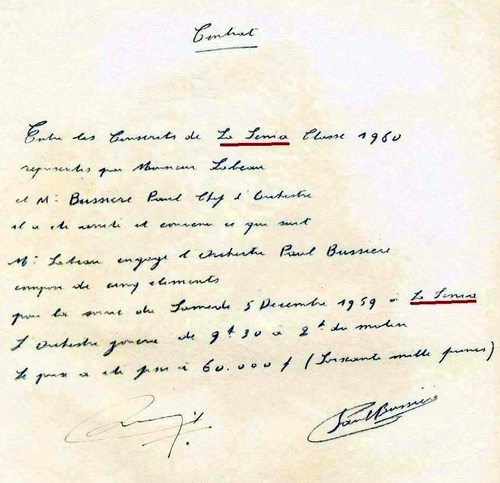 Contrat
Entre les Conscrits de La Senia Classe 1960
represents par Monsieur Lebeau
et Mr Bussiere Paul Chef d'Orchestre
il a ete arreté et convenu ce que suit
Mr Lebeau engage l'Orchestre Paul Bussiere
compose de cinq elements
pour la soiree du Samedi 5 Decembre 1959 à La Senia
L'Orchestre jouera de 9h 30 a 2h du matin
Le prix a ete fixe à 60.000 f (Soixante mille francs)
Paul Bussiere